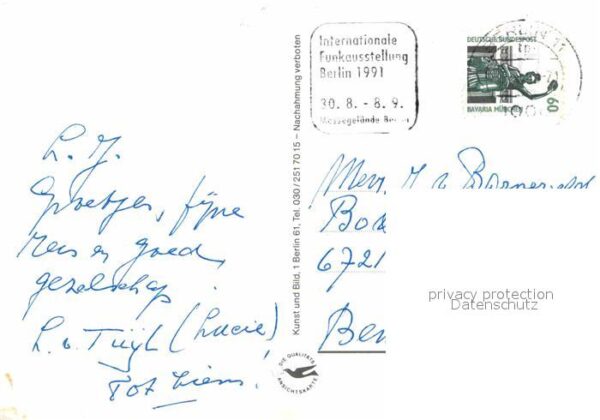 L. J.
Groetjes, fijne
reis en goed
gezelschap.
L. v. Tuijl (Lucie)
Tot ziens!
Kunst und Bild, 1 Berlin 61, Tel. 030 / 251 70 15 – Nachahmung verboten
DIE QUALITÄTS
ANSICHTSKARTE
Internationale
Funkausstellung
Berlin 1991
30. 8. - 8. 9.
Messegelände Berlin
BERLIN 11
DEUTSCHE BUNDESPOST
BAVARIA MÜNCHEN
60
Mevr. H. v.
6721
privacy protection
Datenschutz